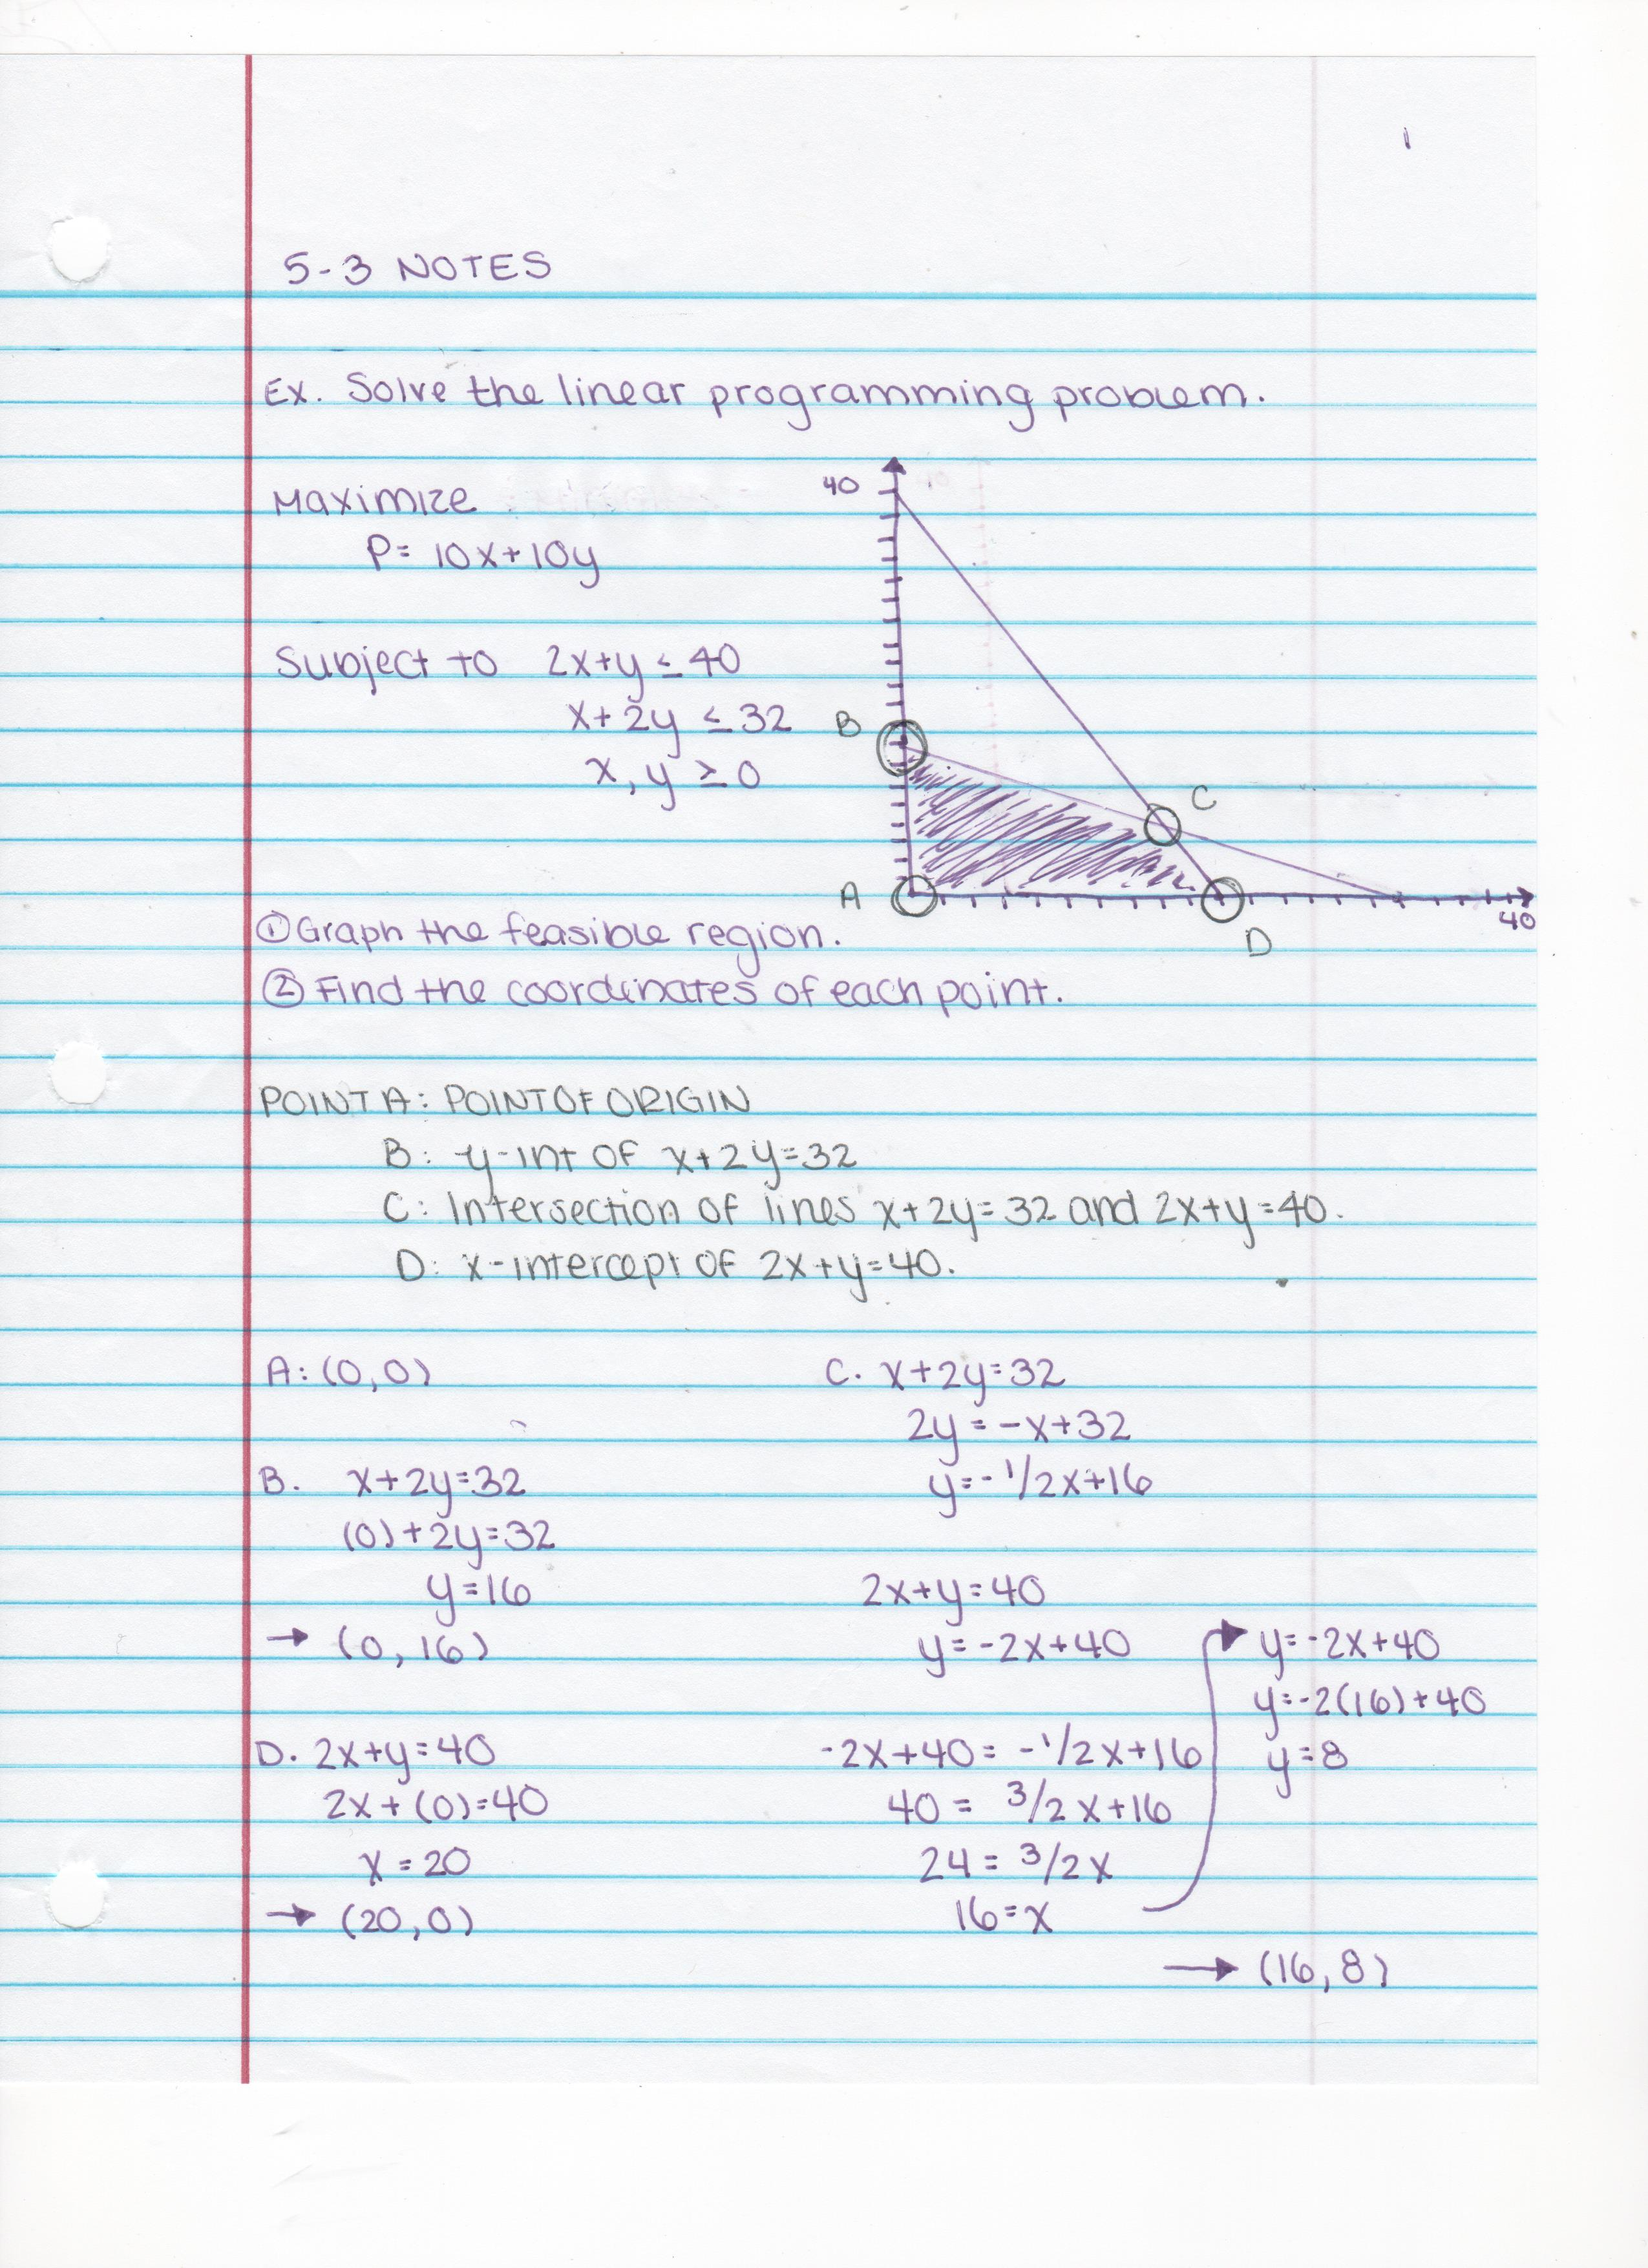 1
5-3 NOTES
Ex. Solve the linear programming problem.
Maximize
P= 10x+10y
Subject to 2x+y ≤ 40
x+2y ≤ 32
x, y ≥ 0
40
B
C
A
40
D
①Graph the feasible region.
② Find the coordinates of each point.
POINT A: POINT OF ORIGIN
B: y-int OF x+2y=32
C: Intersection of lines x+2y=32 and 2x+y=40.
D: x-intercept OF 2x+y=40.
A: (0,0)
B. x+2y=32
(0)+2y=32
y=16
→ (0, 16)
D. 2x+y=40
2x+(0)=40
x=20
→ (20,0)
C. x+2y=32
2y=-x+32
y=-1/2x+16
2x+y=40
y=-2x+40
-2x+40= -1/2x+16
40= 3/2x+16
24= 3/2x
16=x
y=-2x+40
y=-2(16)+40
y=8
→ (16,8)